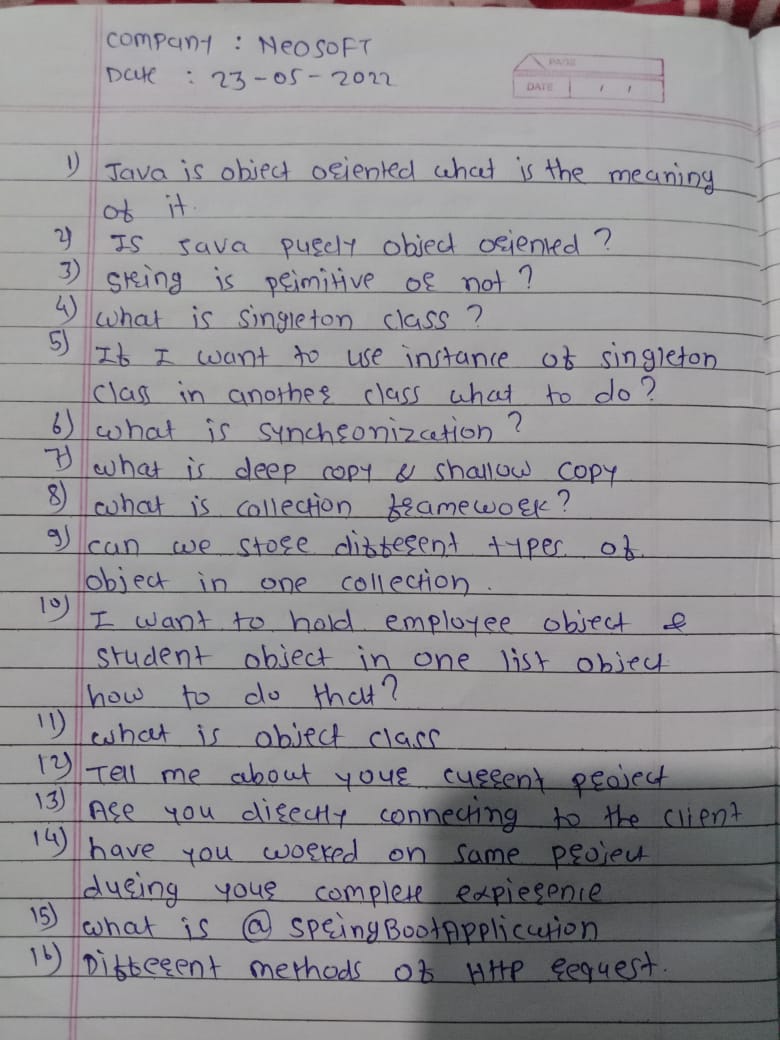 Company : NeosofT
Date : 23-05-2022
PAGE
DATE / /
1) Java is object oriented what is the meaning
of it.
2) Is Java purely object oriented ?
3) String is primitive or not ?
4) what is singleton class ?
5) If I want to use instance of singleton
class in another class what to do?
6) what is synchronization ?
7) what is deep copy & shallow copy
8) what is collection framework?
9) can we store different types of
object in one collection.
10) I want to hold employee object &
student object in one list object
how to do that?
11) what is object class
12) Tell me about your current project
13) Are you directly connecting to the client
14) have you worked on same project
during your complete expierence
15) what is @ SpringBootApplication
16) Different methods of HTTP request.